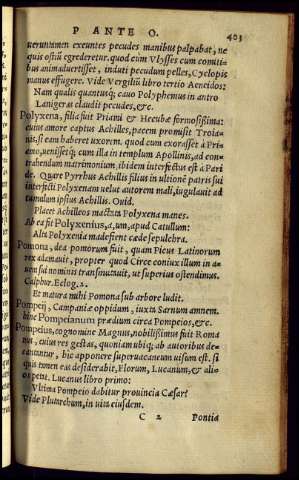 PANTE O. 403
ueruntamen exeuntes pecudes manibus palpabat, ne
quis ostiũ egrederetur. quod cũm Vlysses cum comiti-
bus animaduertisset, induti pecudum pelles, Cyclopis
manus effugere. Vide Vergiliũ libro tertio Aeneidos:
Nam qualis quantusq; cauo Polyphemus in antro
Lanigeras claudit pecudes, &c.
Polyxena, filia fuit Priami & Hecubæ formosissima:
cuius amore captus Achilles, pacem promisit Troia-
nis, si eam haberet uxorem. quod cum exorasset à Pri-
amo, uenissetq; cum illa in templum Apollinis, ad con-
trahendum matrimonium, ibidem interfectus est à Pari-
de. Quare Pyrrhus Achillis filius in ultionẽ patris sui
interfecti Polyxenam uelut autorem mali, iugulauit ad
tumulum ipsius Achillis. Ouid.
Placet Achilleos mactata Polyxena manes.
Ab ea fit Polyxenius, a, um, apud Catullum:
Alta Polyxenia madefient cæde sepulchra.
Pomona, dea pomorum fuit, quam Picus Latinorum
rex adamauit, propter quod Circe coniux illum in a-
uem sui nominis transmutauit, ut superius ostendimus.
Calphur. Eclog. 2.
Et matura mihi Pomona sub arbore ludit.
Pompeij, Campaniæ oppidum, iuxta Sarnum amnem.
hinc Pompeianum prædium circa Pompeios, &c.
Pompeius, cognomine Magnus, nobilissimus fuit Roma
nus, cuius res gestas, quoniam ubiq; ab autoribus de-
cantantur, hic apponere superuacaneum uisum est. si
quis tamen eas desiderabit, Florum, Lucanum, & ali-
os petat. Lucanus libro primo:
Vltima Pompeio dabitur prouincia Cæsar?
Vide Plutarchum, in uita eiusdem.
C 2 Pontia